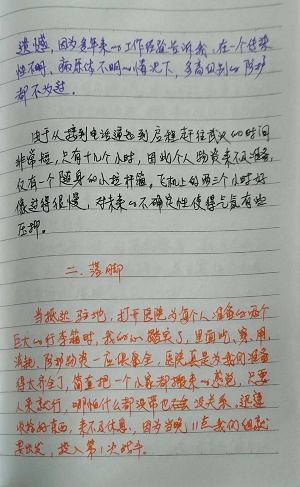 遗憾，因为多年来的工作经验告诉我，在一个传染
性不明、病原体不明的情况下，多高级别的防护
都不为过。
由于从接到电话通知到启程赶往武汉的时间
非常短，只有十几个小时，因此个人物资来不及准备，
仅有一个随身的小拉杆箱。飞机上的两三个小时好
像过得很慢，对未来的不确定性使得气氛有些
压抑。
二、落脚
当抵达驻地，打开医院为每个人准备的两个
巨大的行李箱时，我的心踏实了，里面吃、穿、用、
消耗、防护物资一应俱全，医院真是为我们准备
得太齐全了，简直把一个小家都搬来的感觉，只要
人来就行，哪怕什么都没带也不会没关系。迅速
收拾好东西，来不及休息，因为当晚11点我们组就
要出发，投入第1次战斗。